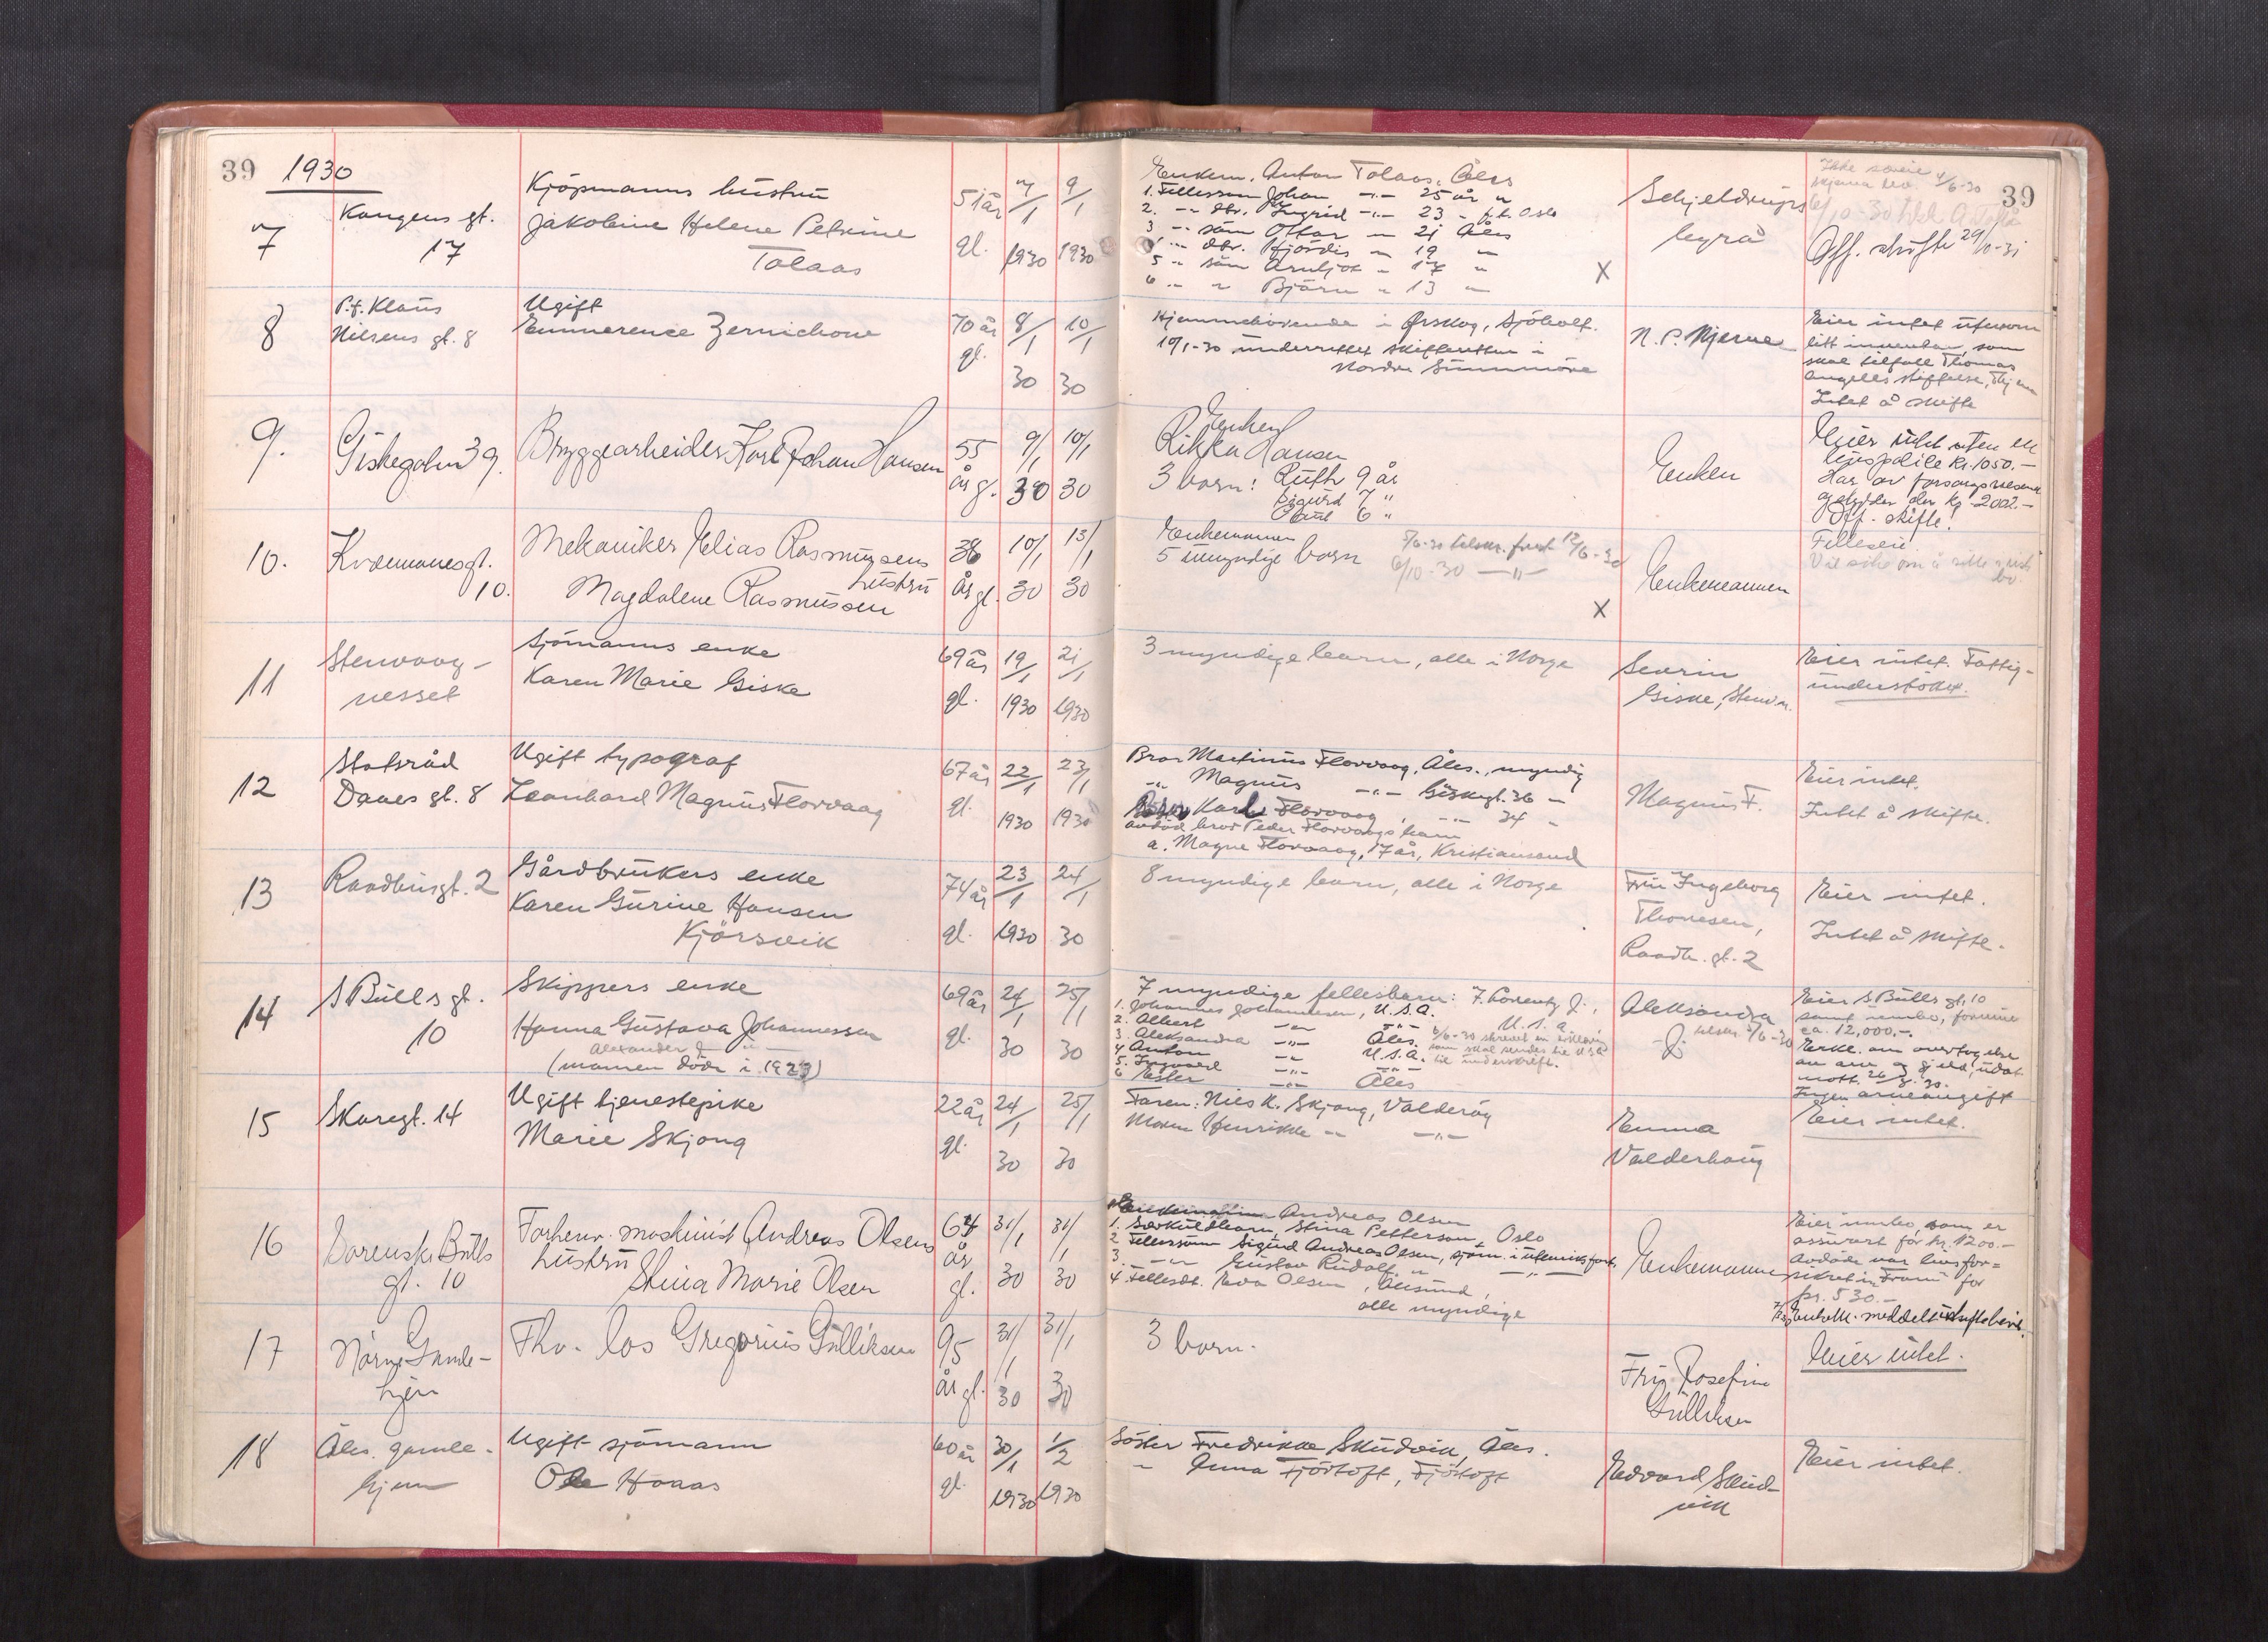 39 1930
7
Kongens gt.
17
Kjöpmanns hustru
Jakobine Helene Petrine
Tolaas
51 år
gl.
7/1
1930
9/1
1930
Enkem. Anton Tolaas, Åles
1. Fellessøn Johan -"- 25 år "
2. -"- dtr. Ingrid -"- 23 - p.t. Oslo
3 -"- søn Ottar - 21 Åles
4 -"- dtr. Hjördis - 19 "
5 " søn Arnljot " 17 "
6 " " Björn " 13 "
X
Schjeldrups
byrå
39
Ikke særeie
4/6-30
6/10-30
Off. skifte 29/10-31
8
P.t. Klaus
Nilsens gt. 8
Ugift
Emmerense Zernichow
70 år
gl.
8/1
30
10/1
30
Hjemmehörende i Ørskog, Sjöholt.
10/1-30 underrettet skifteretten i
Nordre Sunnmöre
N. P. Mjerve
Eier intet utenom
litt innventar, som
skal tilfalle Thomas
Angells stiftelse,
Intet å skifte
9.
Giskegaten 39.
Bryggearbeider Karl Johan Hansen
55
år gl.
9/1
30
10/1
30
Enken
Rikka Hansen
3 barn: Ruth 9 år
Sigurd 7 "
Paul 6 "
Enken
Eier intet uten en
livspolice kr. 1050.-
Har av forsorgsvesenet
kr. 2002.-
Off. skifte!
10.
Kvennanesgt.
10.
Mekaniker Elias Rasmussens
hustru
Magdalene Rasmussen
36
år gl.
10/1
30
13/1
30
Enkemannen
5 umyndige barn
5/6-30 tilskr. frist 12/6-30
6/10-30 -"-
X
Enkemannen
Felleseie
Vil söke om å sitte i usk.
bo
11
Stenvaag-
nesset
Sjömanns enke
Karen Marie Giske
69 år
gl.
19/1
1930
21/1
1930
3 myndige barn, alle i Norge
Severin
Giske, Stenv.n.
Eier intet. Fattig-
understöttet.
12
Statsråd
Daaes gt. 8
Ugift typograf
Leonhard Magnus Flovaag
67 år
gl.
22/1
1930
23/1
1930
Bror Martinus Flovaag, Åles., myndig
-"- Magnus -"- Giskegt. 36 -
Karl Flovaag, -"- 34 -
avdöd bror Peder Flovaags barn
a. Magne Flovaag, 17 år, Kristiansand
Magnus F.
Eier intet.
Intet å skifte.
13
Raadhusgt. 2
Gårdbrukers enke
Karen Gurine Hansen
Kjörsvik
74 år
gl.
23/1
1930
24/1
30
8 myndige barn, alle i Norge
Fru Ingeborg
Thonesen,
Raadh. gt. 2
Eier intet.
Intet å skifte.
14
S Bulls gt.
10
Skippers enke
Hanna Gustava Johannessen
Alexander J -"-
(mannen döde i 1923)
69 år
gl.
24/1
30
25/1
30
7 myndige fellesbarn: 7. Lorentz J.,
1. Johannes Johannessen, U.S.A. U.S.A.
2. Albert -"- -"-
3. Aleksandra -"- Åles. 6/6-30 skrevet en erklæring
4 Anton -"- U.S.A. som skal sendes til USA
5. Ingvard -"- -"- til underskrift.
6 Ester -"- Åles
Aleksandra
J.
tilskr. 5/6-30
Eier S. Bulls gt. 10
samt innbo, formue
ca. 12,000.-.
Erkl. om overtagelse
av arv og gjeld, udat.
mott. 26/8.30.
Ingen arveavgift
15
Skaregt. 14
Ugift tjenestepike
Marie Skjong
22 år
gl.
24/1
30
25/1
30
Faren: Nils K. Skjong, Valderöy
Moren Henrikke -"- -"-
Emma
Valderhaug
Eier intet.
16
Sorensk. Bulls
gt. 10
Forhenv. maskinist Andreas Olsens
hustru
Stina Marie Olsen
64
år
gl.
31/1
30
31/1
30
Enkemannen Andreas Olsen
1. Særkuldbarn Stina Petterson, Oslo
2 Fellessönn Sigurd Andreas Olsen, sjöm. i utenriksfart.
3. -"- Gustav Rudolf " -"-
4. Fellesdt. Eva Olsen, Ålesund,
alle myndige
Enkemannen
Eier innbo, som er
assurert for kr. 1200.-
Avdöde var livsfor=
sikret i "Fram" for
kr. 530.-
Enkem. meddelt uskiftebevil.
17
Nörve Gamle-
hjem
Fhv. los Gregorius Gulliksen
95
år gl.
31/1
30
31/1
30
3 barn.
Frk. Josefine
Gulliksen
Eier intet.
18
Åles. gamle-
hjem
Ugift sjömann
Ole Haaas
60 år
gl.
30/1
1930
1/2
1930
Söster Fredrikke Skudvik, Åles.
" Anna Fjörtoft, Fjörtoft
Edvard Skud-
vik
Eier intet.